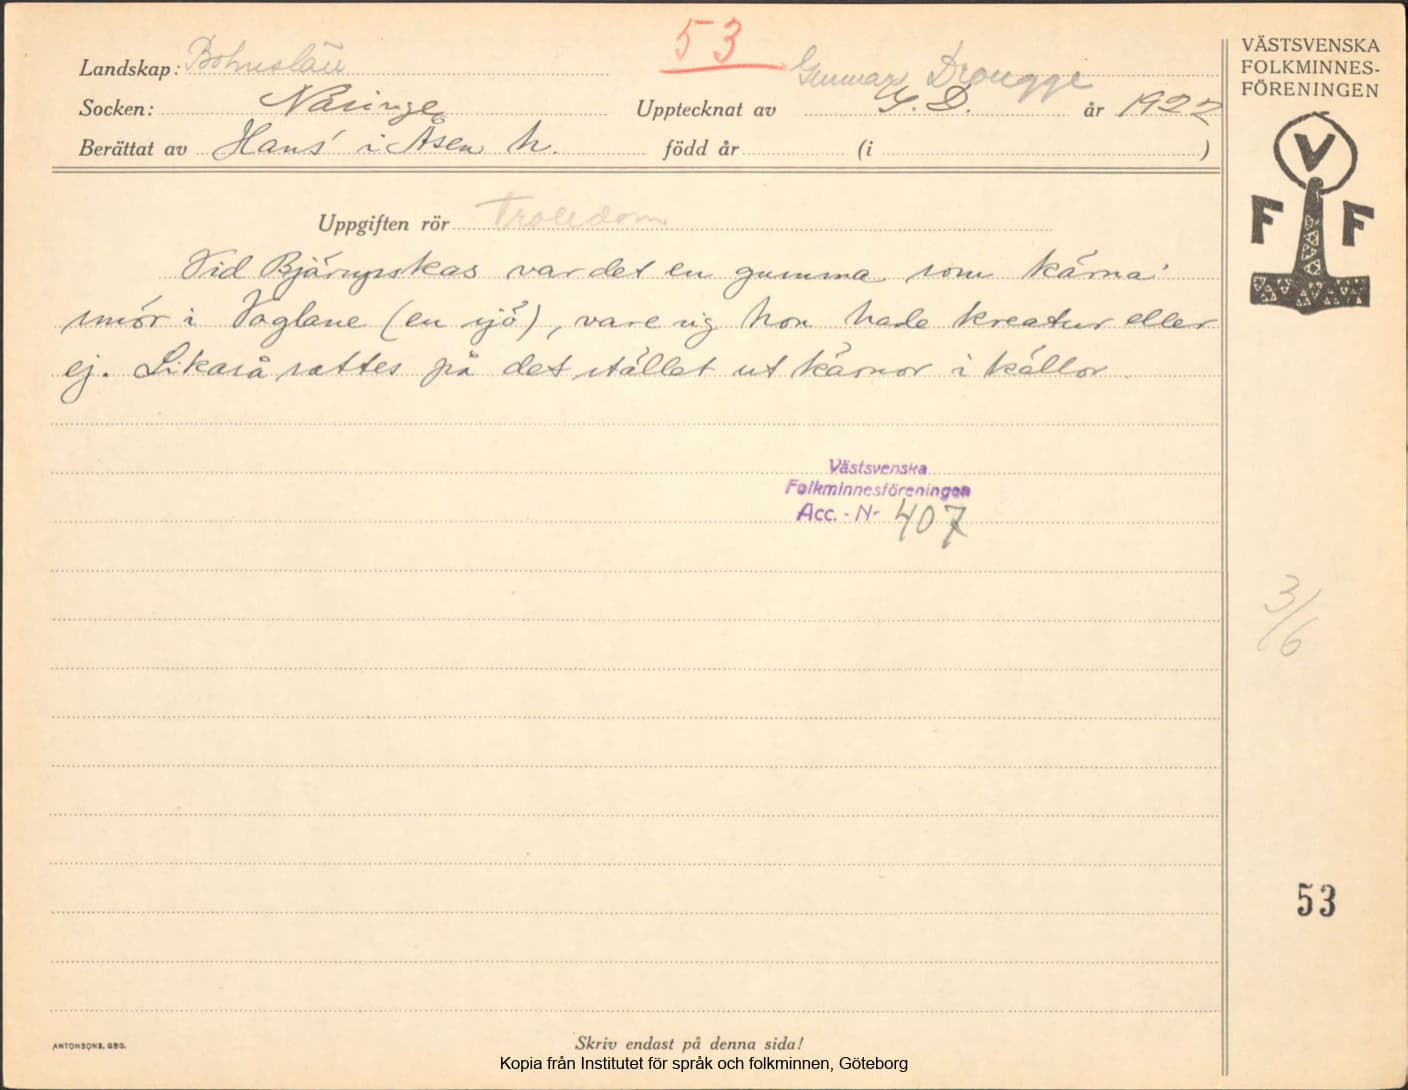 53
Landskap: Bohuslän
Gunnar Drougge
Socken: Naringe
Upptecknat av G. D. år 1922
Berättat av Hans' i Åsen h. född år (i )
Uppgiften rör Trolldom
Vid Bjärnpskas var det en gumma som kärna'
smör i Voglane (en sjö), vare sig hon hade kreatur eller
ej. Likaså sattes på det stället ut kärnor i källor.
Västsvenska
Folkminnesföreningen
Acc. - Nr 407
VÄSTSVENSKA
FOLKMINNES-
FÖRENINGEN
V
F F
3/6
53
ANTONSONS, GBG.
Skriv endast på denna sida!
Kopia från Institutet för språk och folkminnen, Göteborg